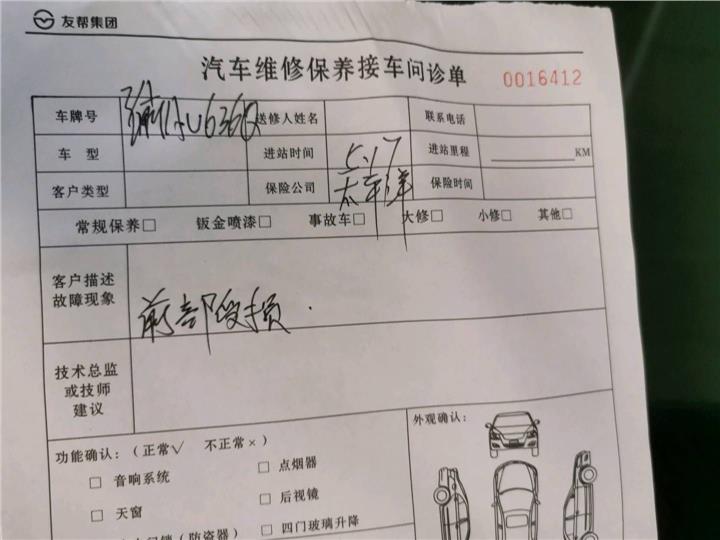 友帮集团
汽车维修保养接车问诊单 0016412
车牌号 U636Q 送修人姓名 联系电话
车 型 进站时间 5.17 进站里程 KM
客户类型 保险公司 太平洋 保险时间
常规保养□ 钣金喷漆□ 事故车□ 大修□ 小修□ 其他□
客户描述
故障现象
前部受损.
技术总监
或技师
建议
功能确认:(正常√ 不正常×) 外观确认:
□ 音响系统 □ 点烟器
□ 天窗 □ 后视镜
(防盗器) □ 四门玻璃升降